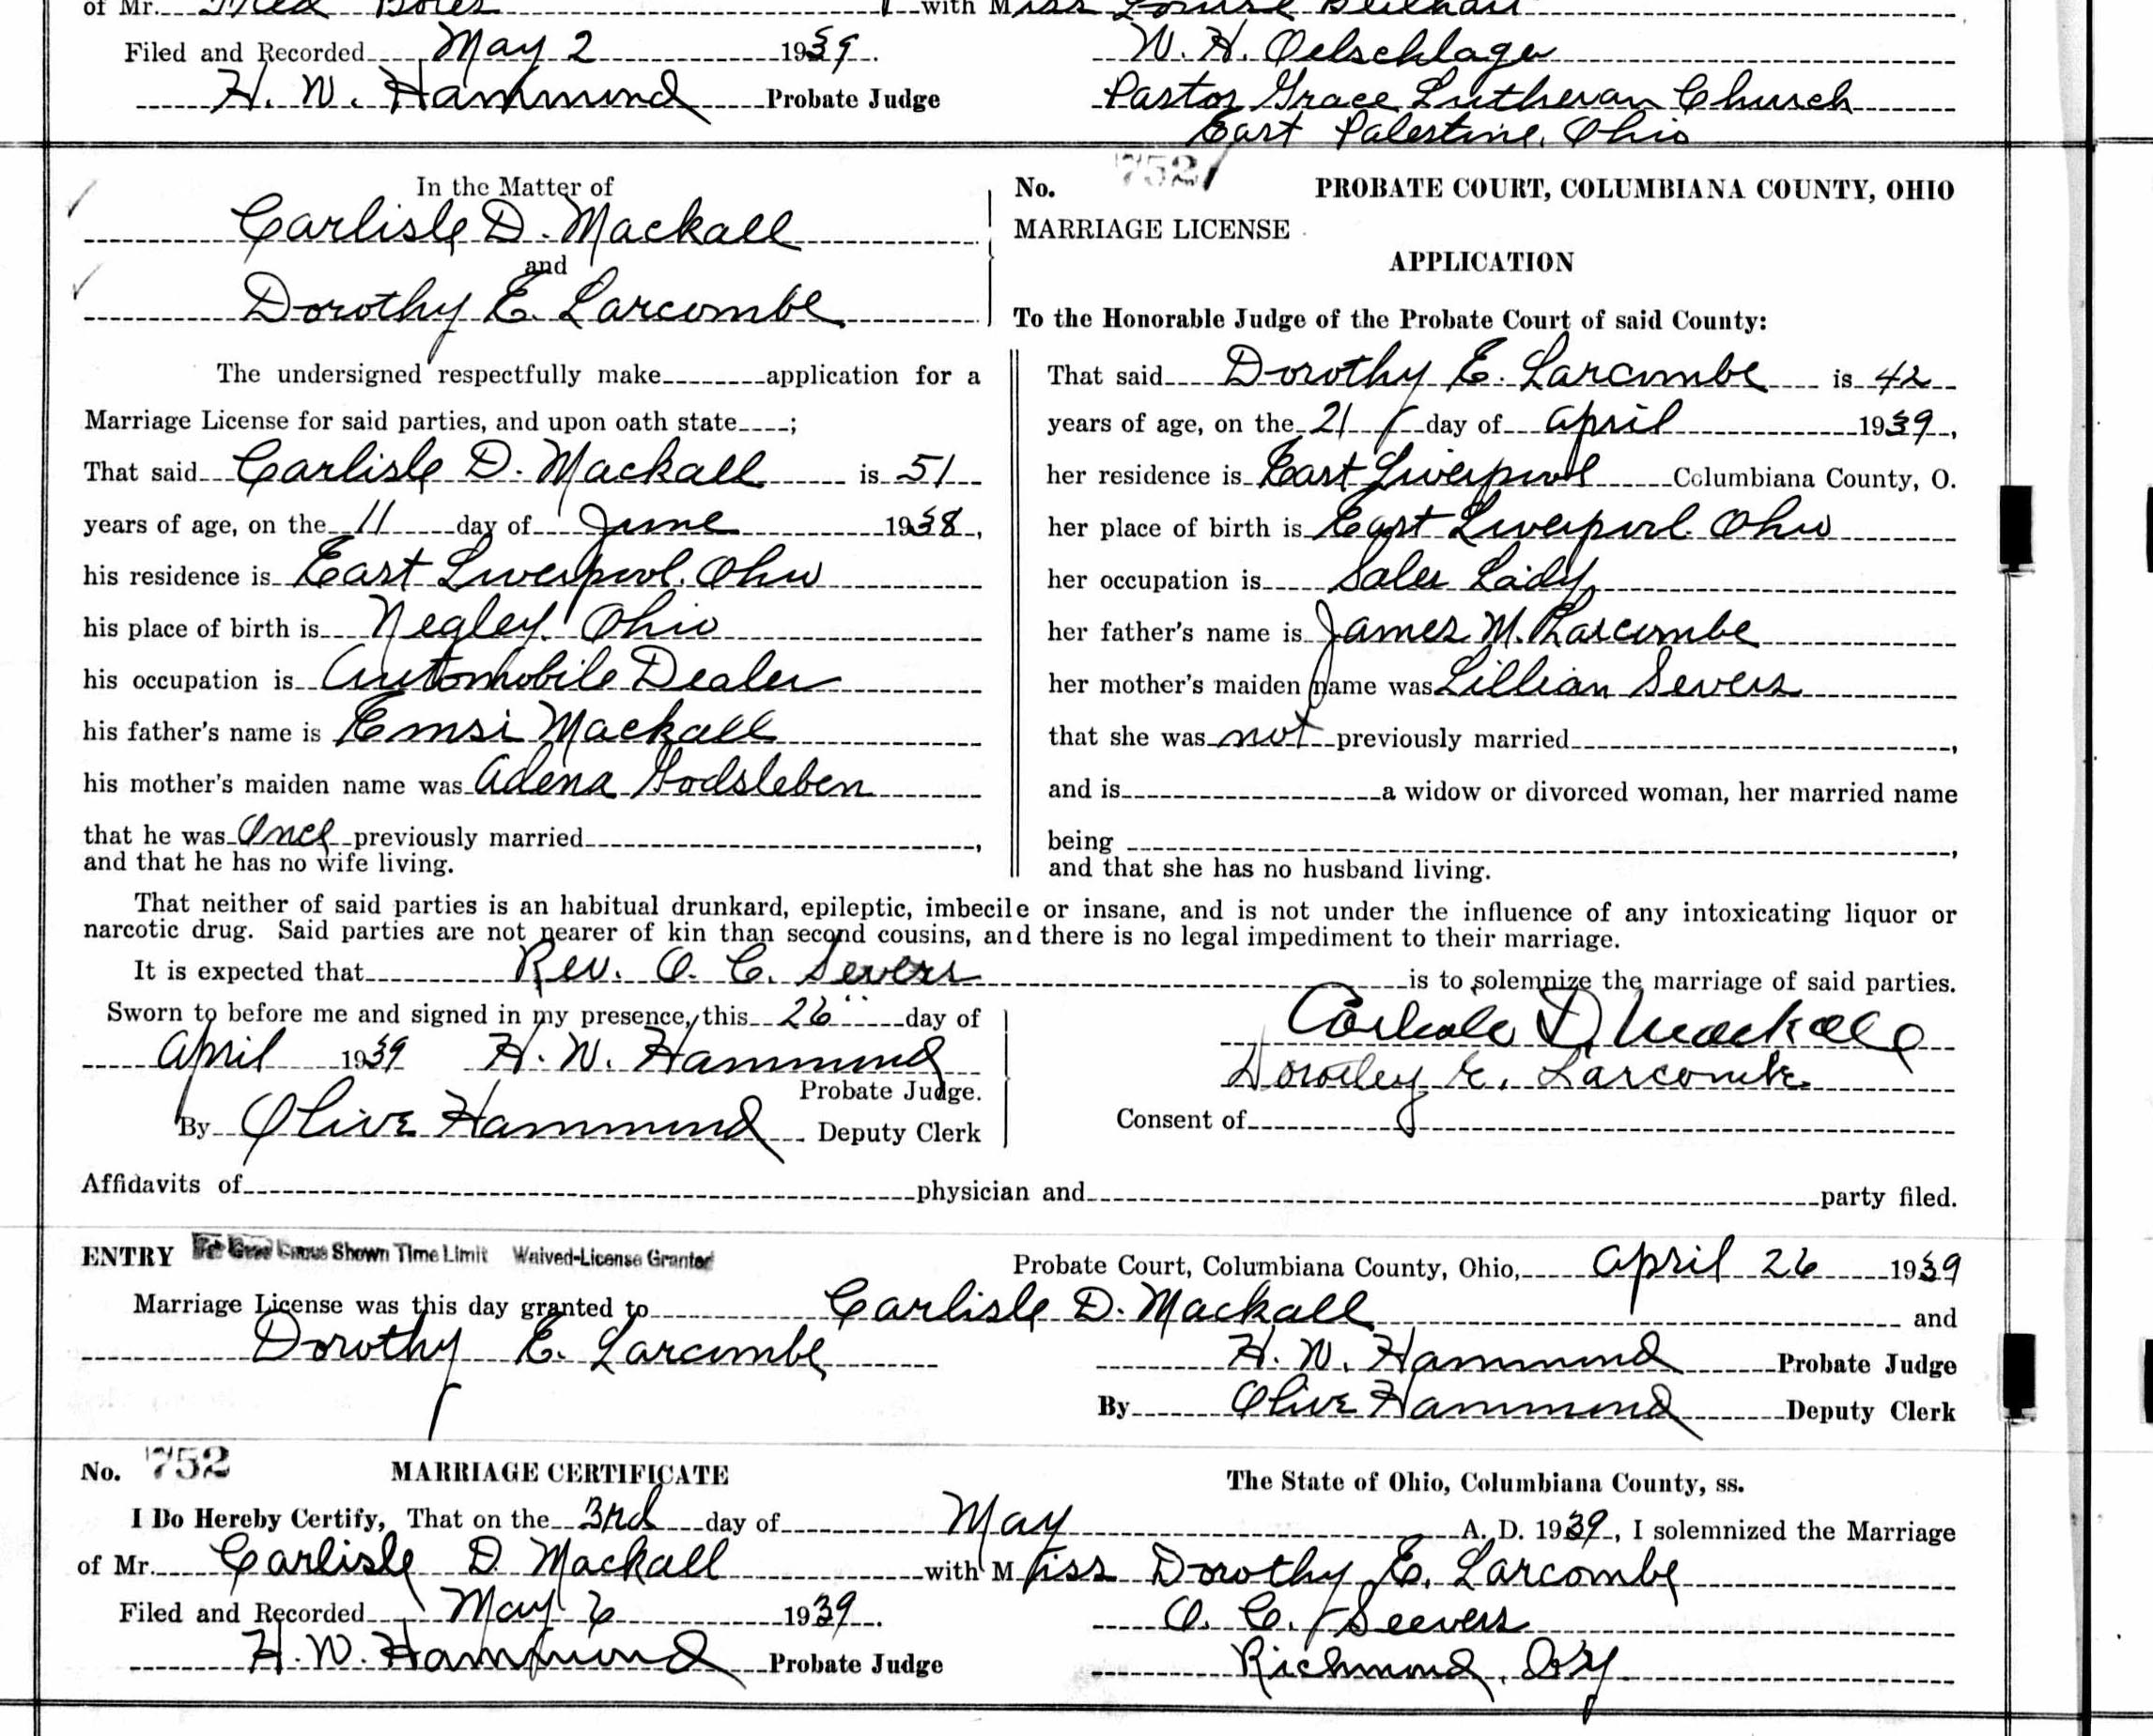 of Mr. Fred with Miss Louise
Filed and Recorded May 2 1939.
W. H. Oelschlager
H. W. Hammond Probate Judge
Pastor Grace Lutheran Church
East Palestine, Ohio
In the Matter of
Carlisle D. Mackall
and
Dorothy E. Larcombe
No. 752 PROBATE COURT, COLUMBIANA COUNTY, OHIO
MARRIAGE LICENSE
APPLICATION
To the Honorable Judge of the Probate Court of said County:
The undersigned respectfully make application for a
Marriage License for said parties, and upon oath state ;
That said Carlisle D. Mackall is 51
years of age, on the 11 day of June 1938,
his residence is East Liverpool, Ohio
his place of birth is Negley, Ohio
his occupation is Automobile Dealer
his father's name is Emsi Mackall
his mother's maiden name was Adena Godsleben
that he was Once previously married ,
and that he has no wife living.
That said Dorothy E. Larcombe is 42
years of age, on the 21 day of April 1939,
her residence is East Liverpool Columbiana County, O.
her place of birth is East Liverpool Ohio
her occupation is Sales Lady
her father's name is James M. Larcombe
her mother's maiden name was Lillian Severs
that she was not previously married ,
and is a widow or divorced woman, her married name
being ,
and that she has no husband living.
That neither of said parties is an habitual drunkard, epileptic, imbecile or insane, and is not under the influence of any intoxicating liquor or
narcotic drug. Said parties are not nearer of kin than second cousins, and there is no legal impediment to their marriage.
It is expected that Rev. O. C. Severs is to solemnize the marriage of said parties.
Sworn to before me and signed in my presence, this 26 day of
April 1939 H. W. Hammond
Probate Judge.
By Olive Hammond Deputy Clerk
Carlisle D. Mackall
Dorothy E. Larcombe
Consent of
Affidavits of physician and party filed.
ENTRY Shown Time Limit Waived-License Granted
Probate Court, Columbiana County, Ohio, April 26 1939
Marriage License was this day granted to Carlisle D. Mackall and
Dorothy E. Larcombe
H. W. Hammond Probate Judge
By Olive Hammond Deputy Clerk
No. 752 MARRIAGE CERTIFICATE
The State of Ohio, Columbiana County, ss.
I Do Hereby Certify, That on the 3rd day of May A. D. 1939, I solemnized the Marriage
of Mr. Carlisle D. Mackall with Miss Dorothy E. Larcombe
Filed and Recorded May 6 1939.
O. C. Seevers
H. W. Hammond Probate Judge
Richmond, Ky